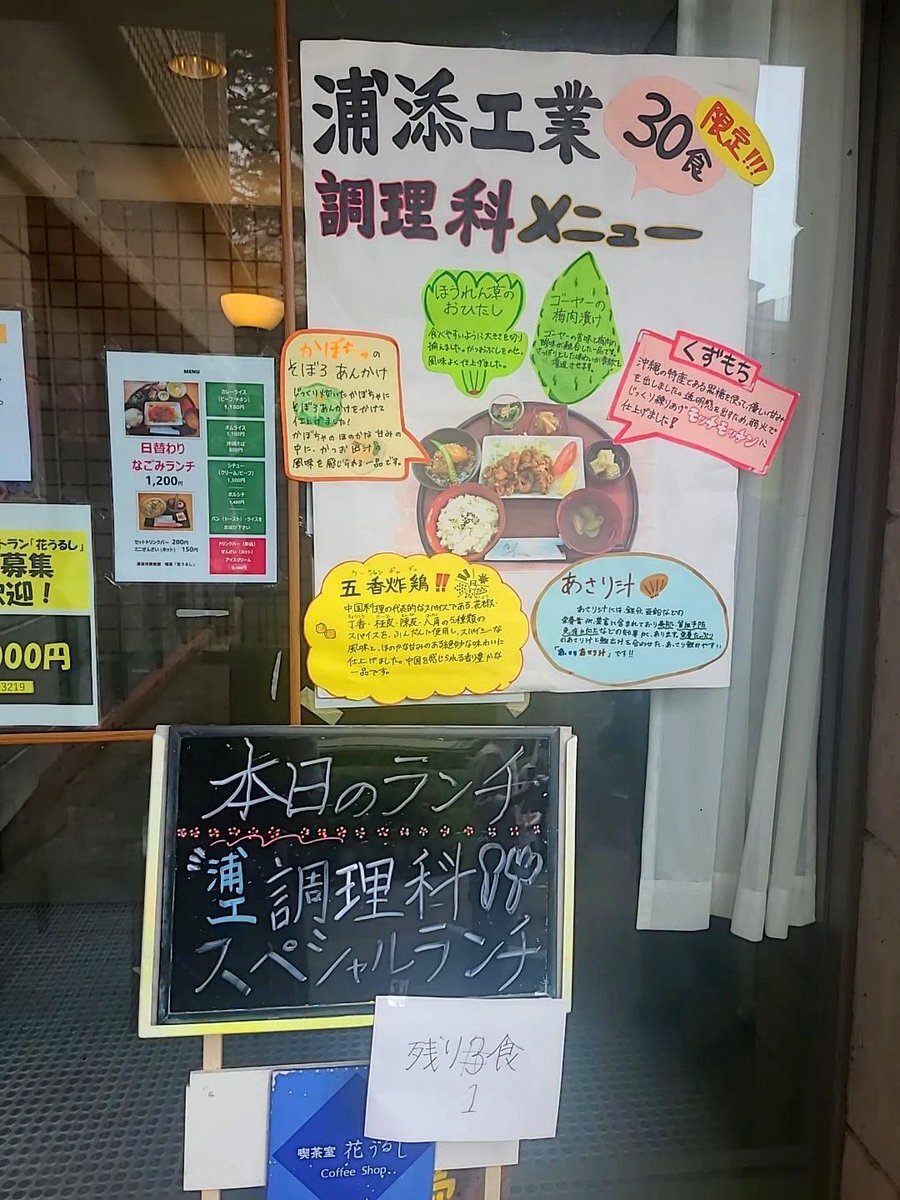 浦添工業
30食
限定!!!
調理科メニュー
ほうれん草の
おひたし
食べやすいように大きさを切り
揃えました。かつおぶしをのせ、
風味よく仕上げました。
ゴーヤーの
梅肉漬け
ゴーヤーの苦味と梅肉の
酸味が融合した一品です。
さっぱりとした味わいが食欲を
増進させます。
かぼちゃの
そぼろあんかけ
じっくり炊いたかぼちゃに
そぼろあんかけをかけて
仕上げました!
かぼちゃのほのかな甘みの
中に、かつお出汁の
風味を感じられる一品です。
くずもち
沖縄の特産である黒糖を使って優しい甘み
を出しました。透明感を出すため、弱火で
じっくり練りあげモッチモッチンに
仕上げました!
五香炸鶏!!
ウーシャンヂャーヂー
中国料理の代表的なスパイスである、花椒・
丁香・桂皮・陳皮・八角の5種類の
スパイスを、ふんだんに使用し、スパイシーな
風味と、ほのかな甘みのある絶妙な味わいに
仕上げました。中国を感じられる香り豊かな
一品です。
あさり汁
あさり汁には鉄分、亜鉛などの
栄養素が豊富に含まれており
のあさりだけと鰹出汁を合わせた、あっさり飲みやすい
「あっさりあさり汁」です!!
MENU
日替わり
なごみランチ
1,200円
セットドリンクバー 200円
ミニぜんざい(ホット) 150円
カレーライス
(ビーフ/チキン)
1,150円
オムライス
1,100円
沖縄そば
800円
シチュー
(クリーム/ビーフ)
1,300円
ボルシチ
パン(トースト)・ライスを
お選び下さい
ドリンクバー(単品)
ぜんざい(ホット)
アイスクリーム
トラン「花うるし」
募集
迎!
000円
3219
本日のランチ
浦工
調理科
スペシャルランチ
残り3食
1
喫茶室 花うるし
Coffee Shop